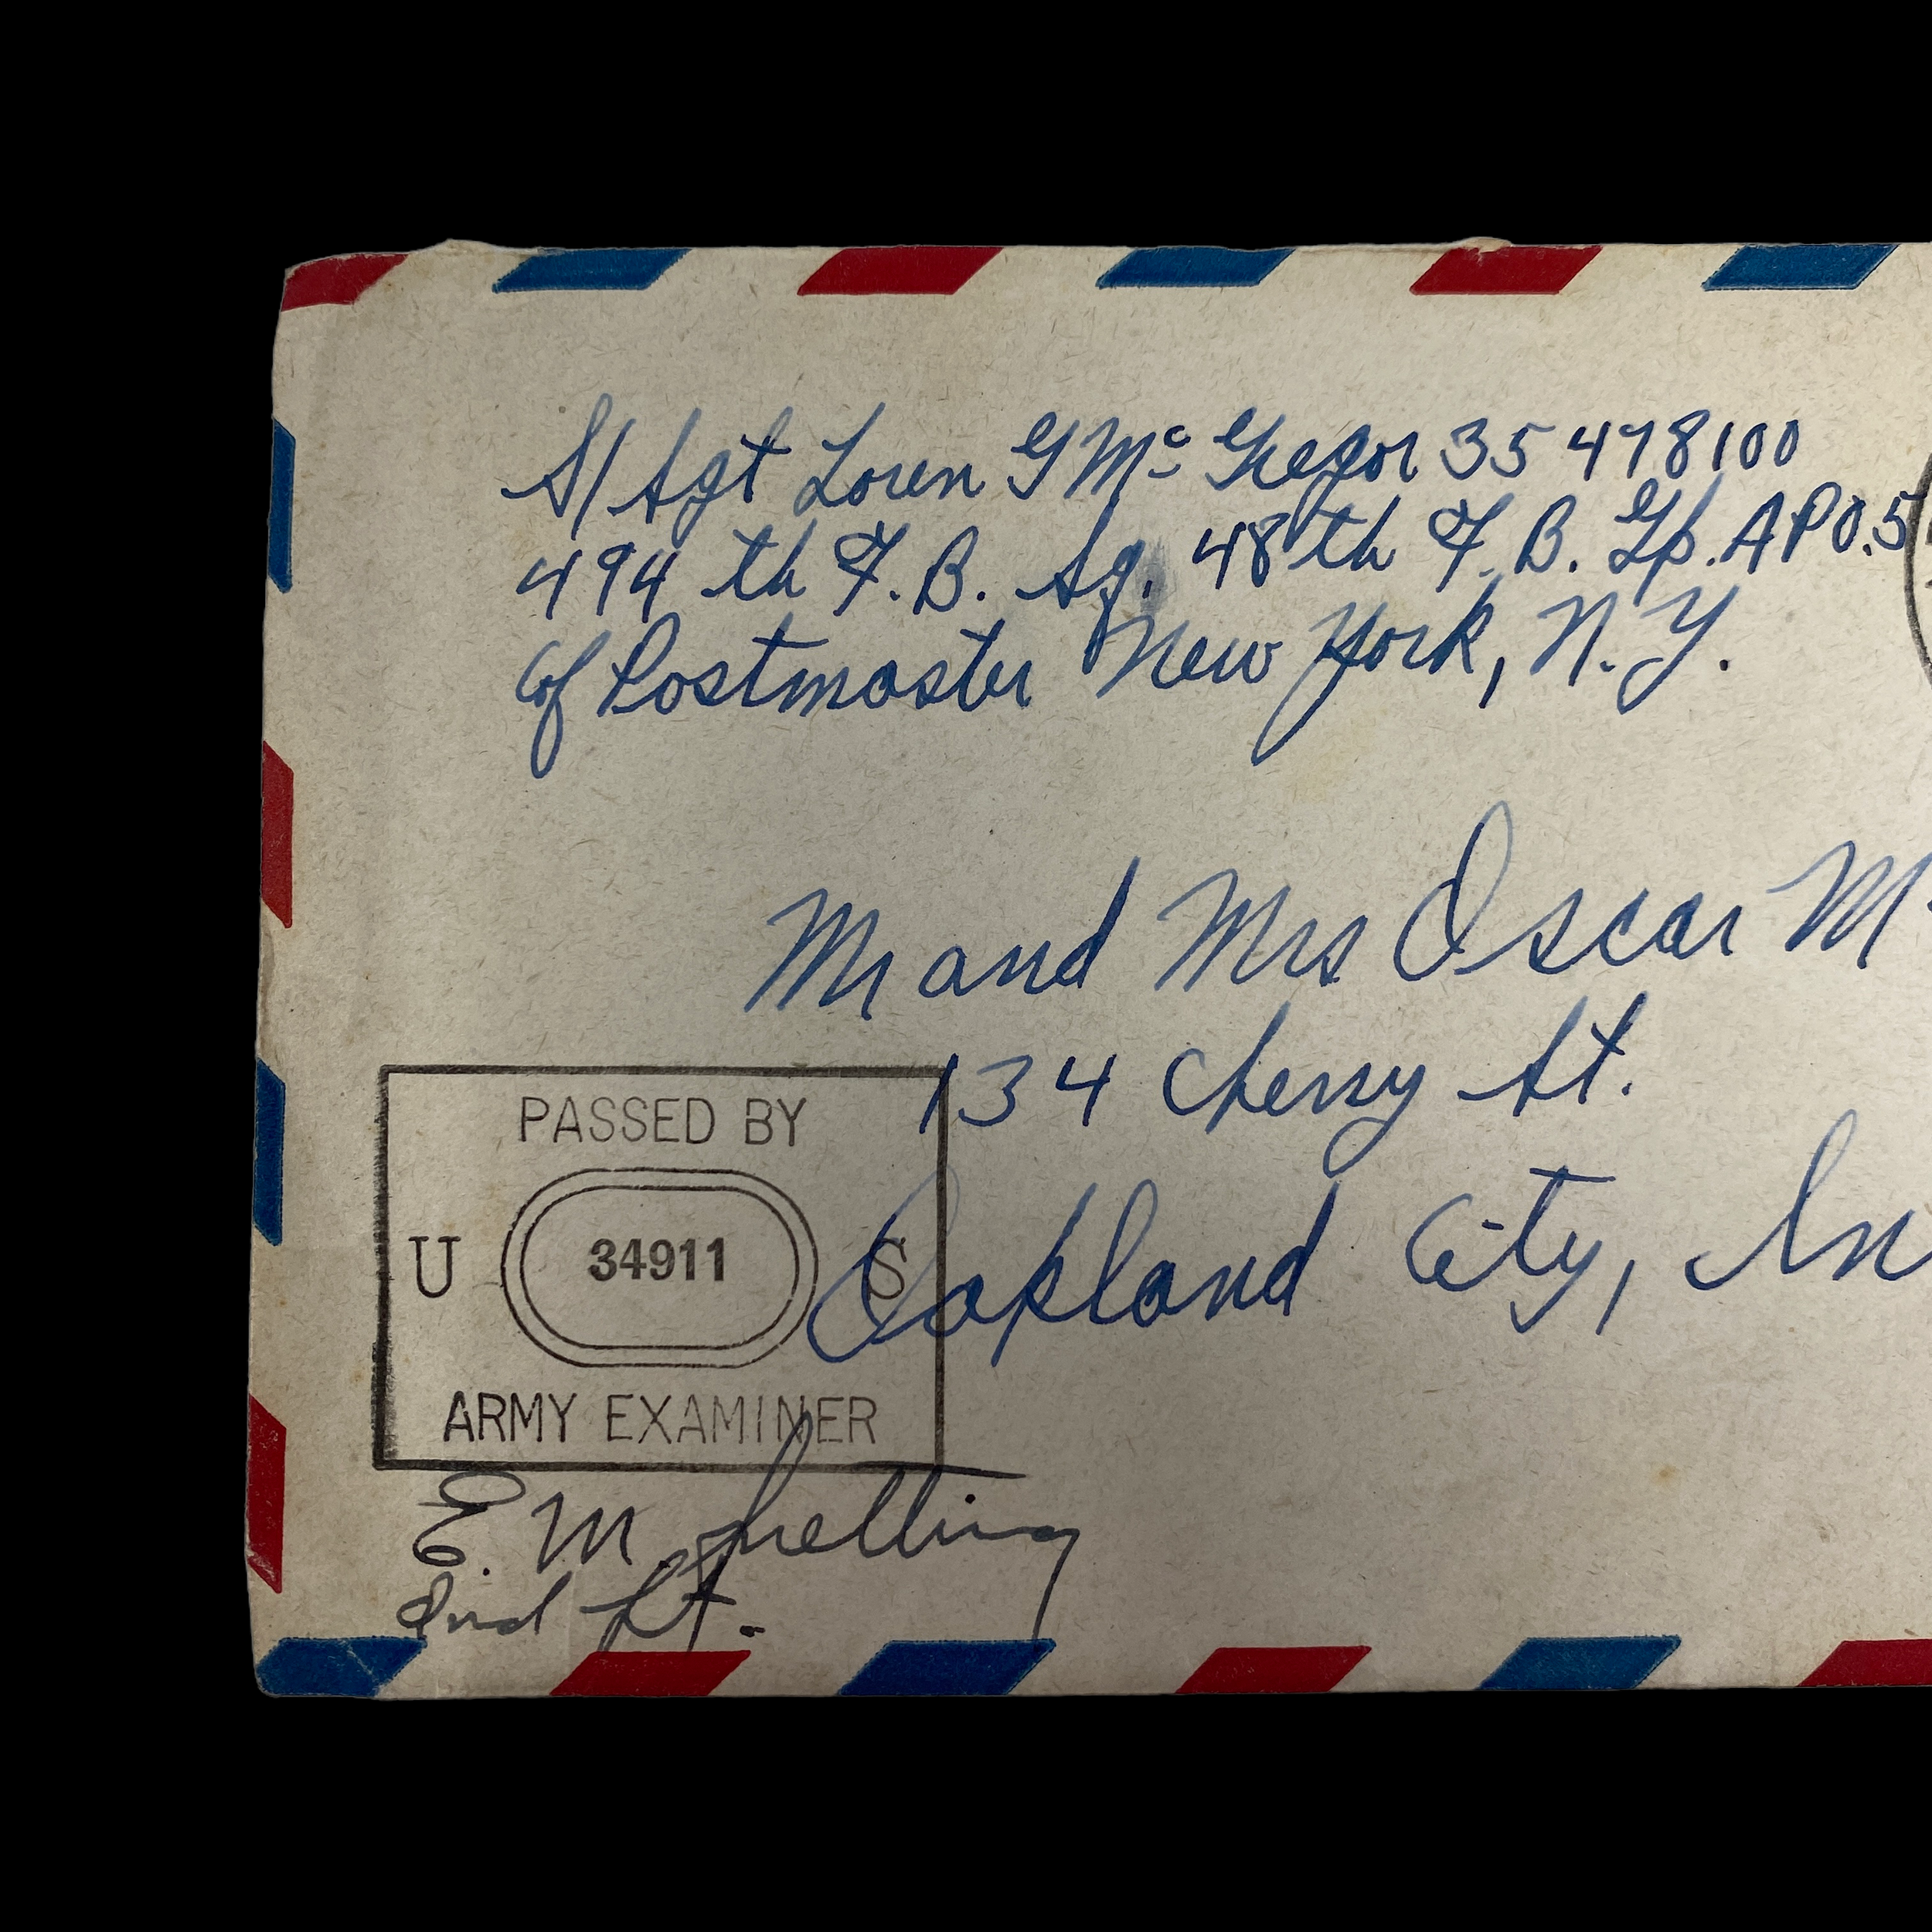 S/Sgt Loren G McGregor 35 478100
494 th F. B. Sq. 48th F. B. Gp. APO. 5
c/o Postmaster New York, N. Y.
Mr and Mrs Oscar Mc
134 Cherry St.
Oakland City, In
PASSED BY
U 34911 S
ARMY EXAMINER
E. M.
2nd Lt.